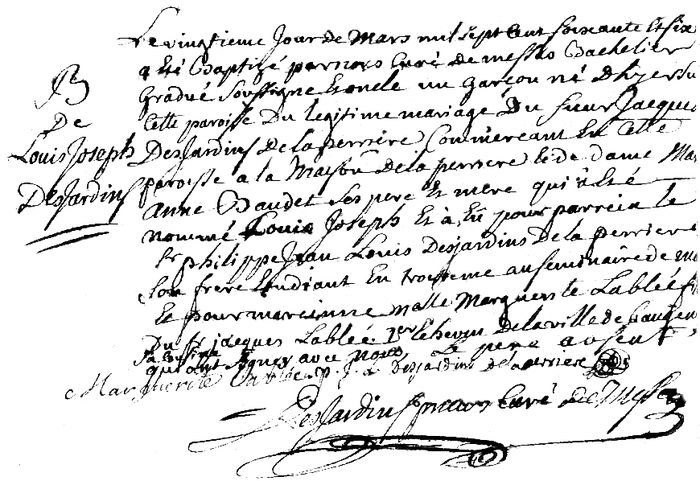 B
De
Louis Joseph
DesJardins
Le vingtieme Jour de Mars mil sept Cent soixante Et six
a Eté Baptizé par nous Curé de messas Bachelier
Gradué Soussigné Et oncle un Garçon né d'hyer su
Cette paroisse Du legitime mariage Du Sieur Jacques
DesJardins De la perriere Commercant En Cette
paroisse a la Maison De la perriere Et de dame Ma
Anne Baudet Ses pere Et mere qui a Eté
nommé Louis Joseph Et à Eu pour parrein le
Sr philippe Jean Louis Desjardins De la perriere
Son frere Etudiant En troisieme au seminaire de
Et pour mareinne Malle Marguerite Lablée fi
Du Sr jacques Lablée 1er Echevin De la ville de Baugen
Sa Cousine
qui ont Signés avec nous Le pere absent
Marguerite Lablée p. J. L Desjardins de la perriere
DesJardins Curé de Messas